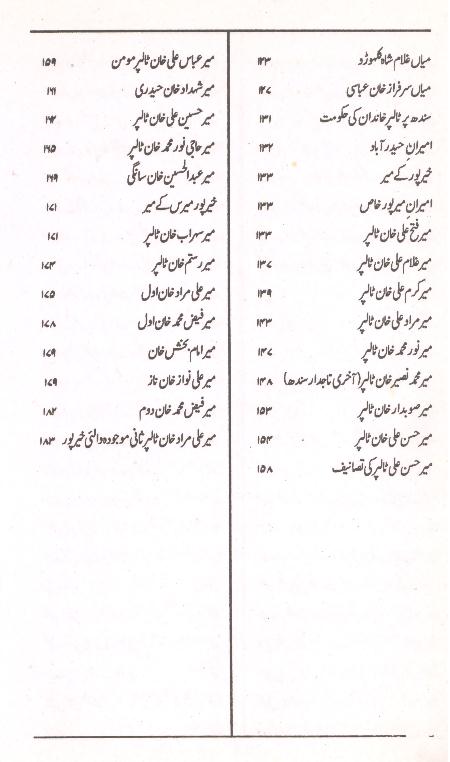 میاں غلام شاہ کلہوڑو ۱۲۳
میاں سرفراز خان عباسی ۱۲۷
سندھ پر ٹالپر خاندان کی حکومت ۱۳۱
امیرانِ حیدرآباد ۱۳۲
خیرپور کے میر ۱۳۳
امیران میرپور خاص ۱۳۳
میر فتح علی خان ٹالپر ۱۳۳
میر غلام علی خان ٹالپر ۱۳۷
میر کرم علی خان ٹالپر ۱۳۹
میر مراد علی خان ٹالپر ۱۴۳
میر نور محمد خان ٹالپر ۱۴۷
میر محمد نصیر خان ٹالپر (آخری تاجدار سندھ) ۱۴۸
میر صوبدار خان ٹالپر ۱۵۳
میر حسن علی خان ٹالپر ۱۵۴
میر حسن علی ٹالپر کی تصانیف ۱۵۸
میر عباس علی خان ٹالپر مومن ۱۵۹
میر شہداد خان حیدری ۱۶۱
میر حسین علی خان ٹالپر ۱۶۲
میر حاجی نور محمد خان ٹالپر ۱۶۵
میر عبدالحسین خان سانگی ۱۶۹
خیرپور میرس کے میر ۱۷۱
میر سہراب خان ٹالپر ۱۷۱
میر رستم خان ٹالپر ۱۷۴
میر علی مراد خان اول ۱۷۵
میر فیض محمد خان اول ۱۷۸
میر امام بخش خان ۱۷۹
میر علی نواز خان ناز ۱۷۹
میر فیض محمد خان دوم ۱۸۲
میر علی مراد خان ٹالپر ثانی موجودہ والئی خیرپور ۱۸۳